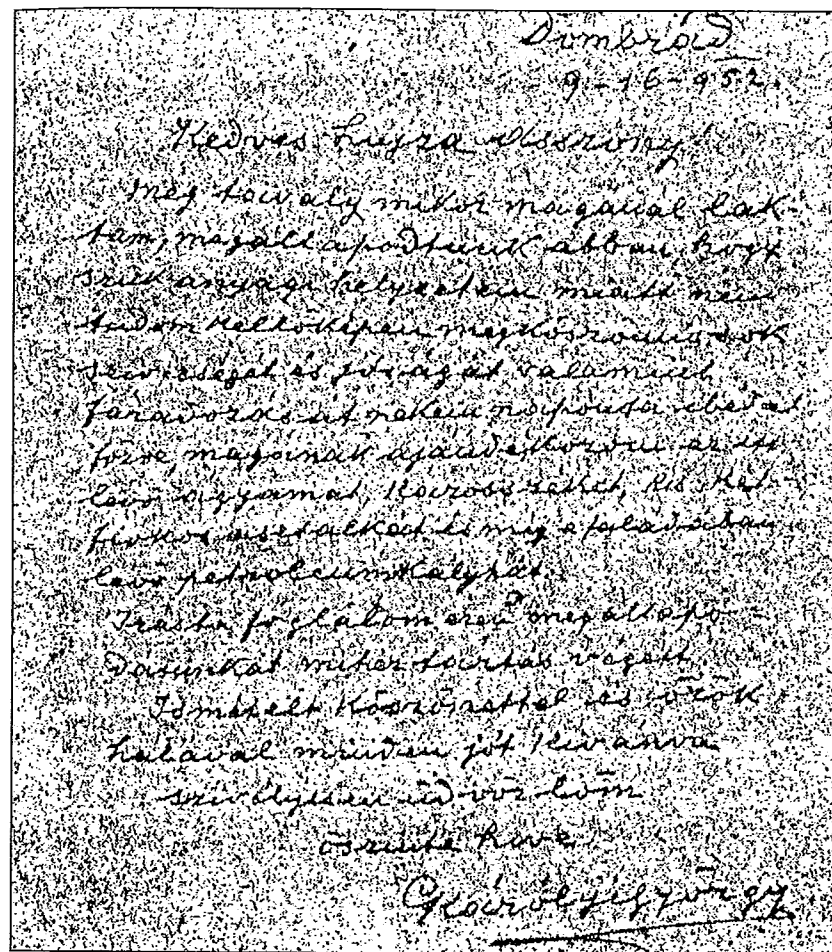 Dombrád
9-16-952.
Kedves Lujza Asszony!
Meg tavaly mikor magánál lak-
tam, megállapodtunk abban, hogy
szük anyagi helyzetem miatt nem
tudom kellőképen megköszönni sok
szivességét és jóságát valamint
fáradozását nekem naponta ebédet
főzve, magának ajándékozom az itt
levő ágyamat, két
fiókos asztalkát és még a
levő petroleumkályhát.
Irásba foglalom ezen megállapo-
dásunkat mihez tartás végett.
Ismételt köszönettel és örök
hálával minden jót kivánva
szivélyesen üdvözlöm
őszinte hive
Károlyi György